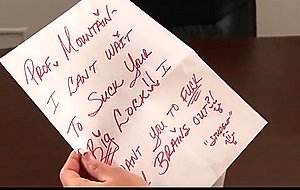 Prof. Mountain-
I can't wait
To Suck Your
Big Cock!! I
want you to Fuck
! Brains out?!
"Student"